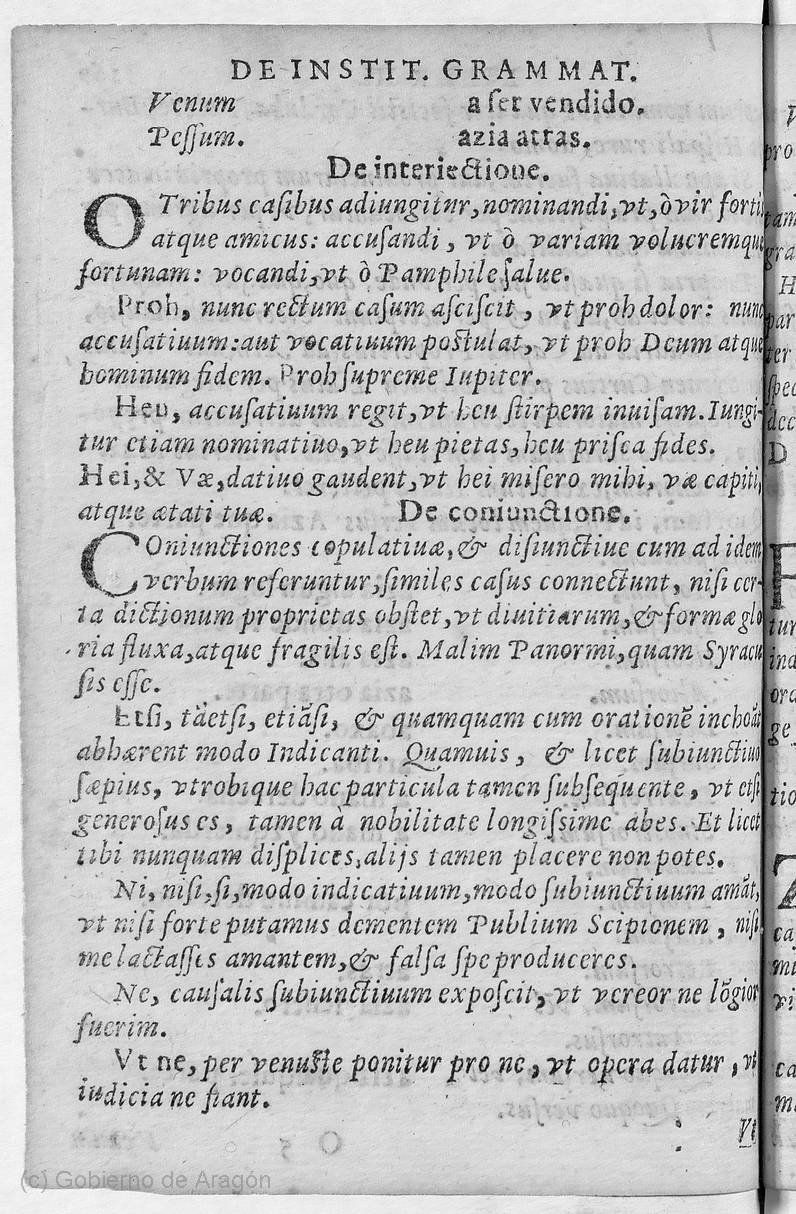 DE INSTIT. GRAMMAT.
Venum a ser vendido.
Peſſum. azia atras.
De interiectione.
O Tribus caſibus adiungitur, nominandi, vt, ò vir fortis
atque amicus: accuſandi, vt ò variam volucremque
fortunam: vocandi, vt ò Pamphile ſalue.
Proh, nunc rectum caſum aſciſcit, vt proh dolor: nunc
accuſatiuum: aut vocatiuum poſtulat, vt proh Deum atque
hominum fidem. Proh ſupreme Iupiter.
Heu, accuſatiuum regit, vt heu ſtirpem inuiſam. Iungi-
tur etiam nominatiuo, vt heu pietas, heu priſca fides.
Hei, & Væ, datiuo gaudent, vt hei miſero mihi, væ capiti,
atque ætati tuæ. De coniunctione.
COniunctiones copulatiuæ, & diſiunctiue cum ad idem
verbum referuntur, ſimiles caſus connectunt, niſi cer-
ta dictionum proprietas obſtet, vt diuitiarum, & formæ glo
ria fluxa, atque fragilis eſt. Malim Panormi, quam Syracu
ſis eſſe.
Etſi, tãetſi, etiãſi, & quamquam cum orationẽ inchoãt
abhærent modo Indicanti. Quamuis, & licet ſubiunctiuo
ſæpius, vtrobique hac particula tamen ſubſequente, vt etſi
generoſus es, tamen à nobilitate longiſsime abes. Et licet
tibi nunquam diſplices, alijs tamen placere non potes.
Ni, niſi, ſi, modo indicatiuum, modo ſubiunctiuum amãt,
vt niſi forte putamus dementem Publium Scipionem, niſi
me lactaſſes amantem, & falſa ſpe produceres.
Ne, cauſalis ſubiunctiuum expoſcit, vt vereor ne lõgior
fuerim.
Vt ne, per venuſte ponitur pro ne, vt opera datur, vt
iudicia ne fiant.
Vt
(c) Gobierno de Aragón